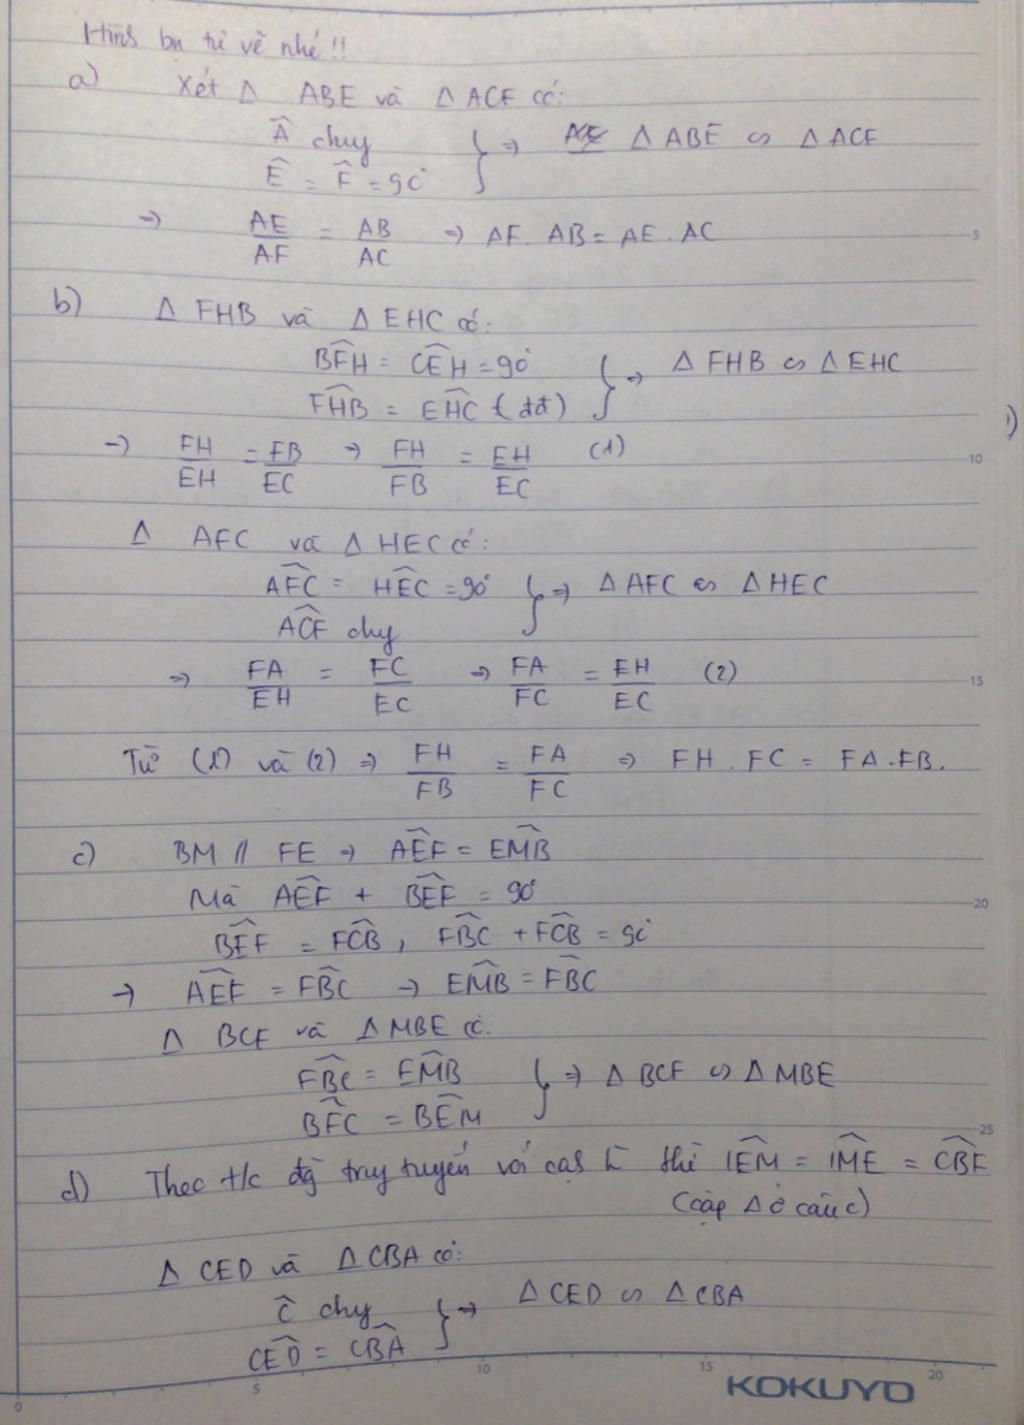 Hình bn tự vẽ nhé !!
a) Xét Δ ABE và Δ ACF có:
Â chug } => Δ ABE ∽ Δ ACF
Ê = F̂ = 90°
=> AE/AF = AB/AC => AF. AB = AE. AC
b) Δ FHB và Δ EHC có:
BF̂H = CÊH = 90° } => Δ FHB ∽ Δ EHC
FĤB = EĤC (đđ)
=> FH/EH = FB/EC => FH/FB = EH/EC (1)
Δ AFC và Δ HEC có:
AF̂C = HÊC = 90° } => Δ AFC ∽ Δ HEC
AĈF chug
=> FA/EH = FC/EC => FA/FC = EH/EC (2)
Từ (1) và (2) => FH/FB = FA/FC => FH . FC = FA . FB.
c) BM // FE => AÊF = EM̂B
Mà AÊF + BÊF = 90°
BÊF = FĈB, FB̂C + FĈB = 90°
=> AÊF = FB̂C => EM̂B = FB̂C
Δ BCF và Δ MBE có:
FB̂C = EM̂B } => Δ BCF ∽ Δ MBE
BF̂C = BÊM
d) Theo t/c đg trug tuyến với cạh thì IÊM = IM̂E = CB̂F
(cặp Δ ở câu c)
Δ CED và Δ CBA có:
Ĉ chug } => Δ CED ∽ Δ CBA
CÊD = CB̂A
KOKUYO